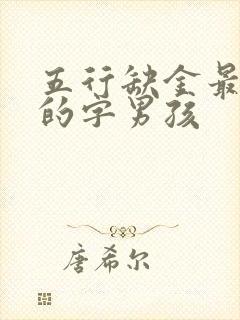 五行缺金最
的字男孩
唐希尔